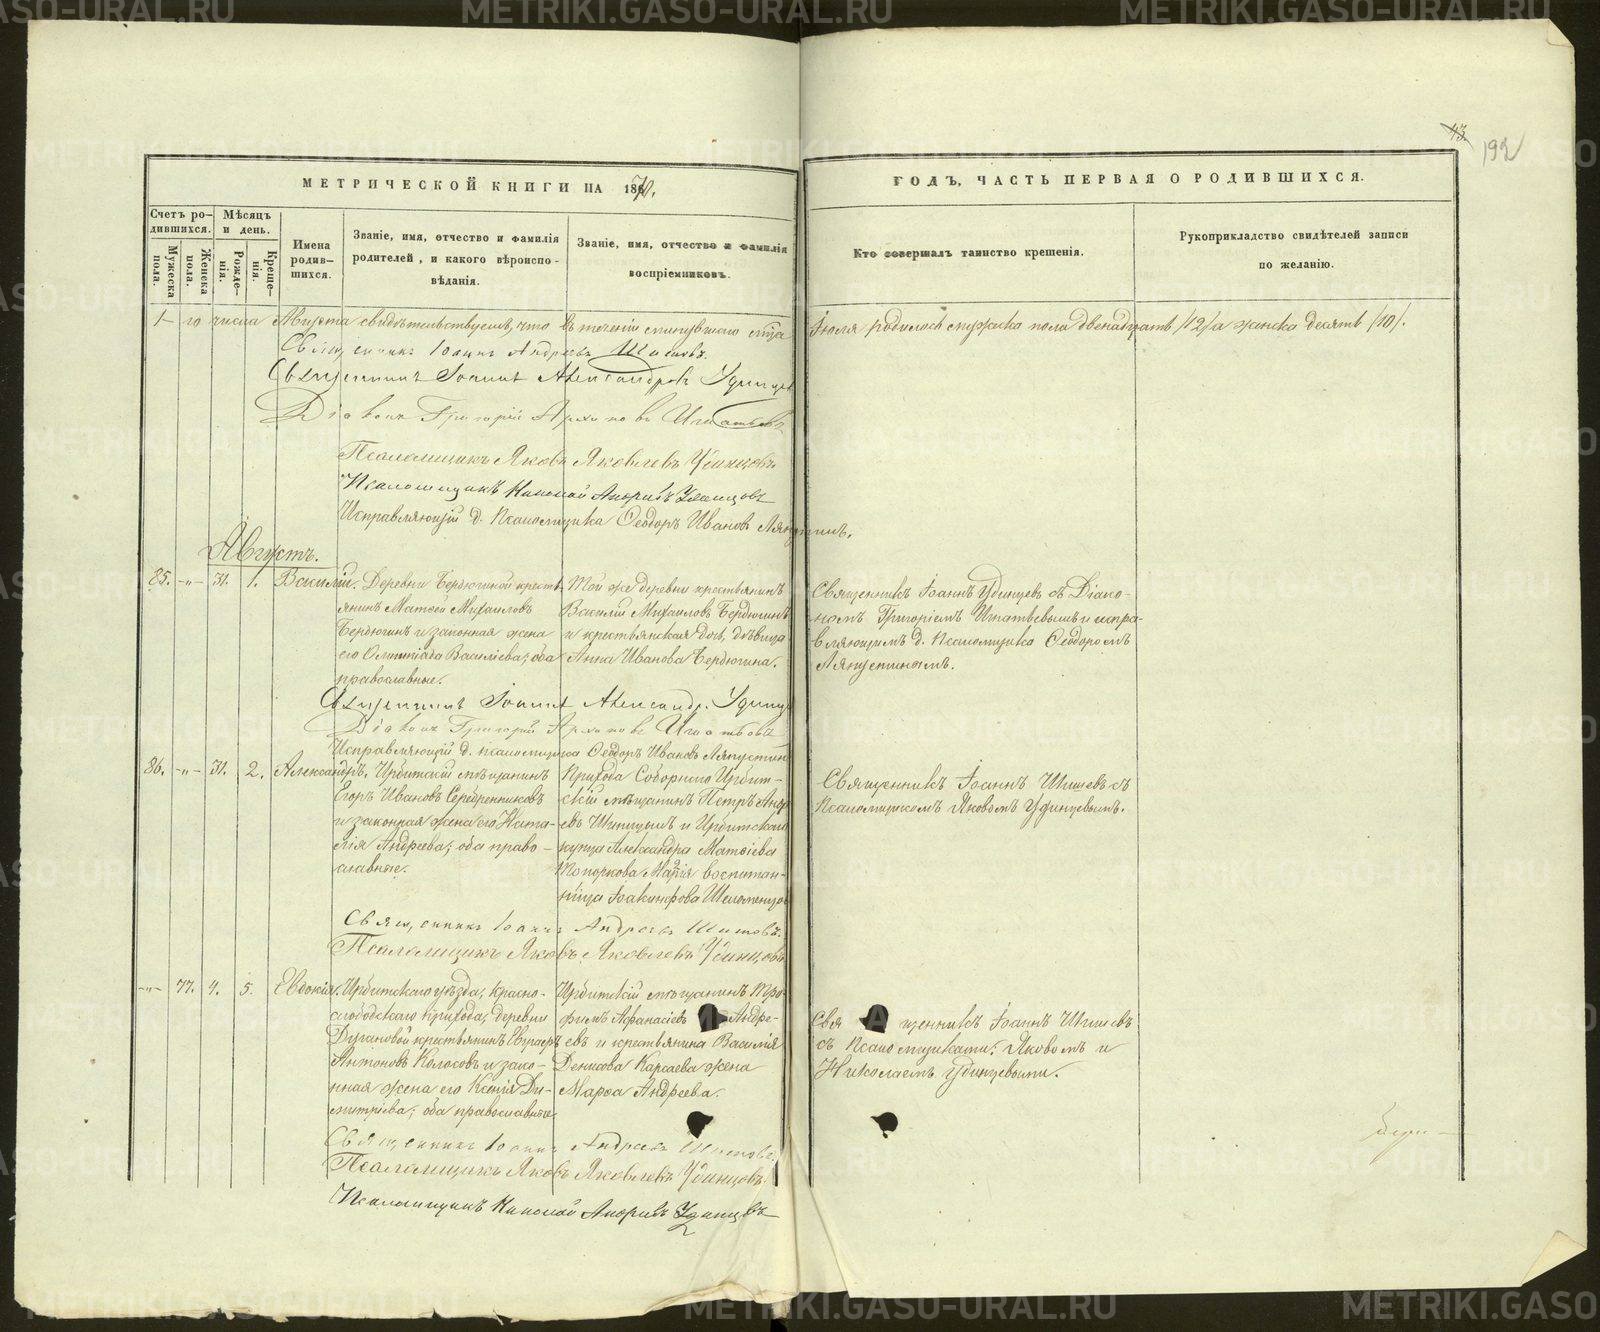 МЕТРИЧЕСКОЙ КНИГИ НА 1870.
ГОДЪ, ЧАСТЬ ПЕРВАЯ О РОДИВШИХСЯ.
43
192
Счетъ родившихся.
Мужеска пола.
Женска пола.
Мѣсяцъ и день.
Рожденія.
Крещенія.
Имена родившихся.
Званіе, имя, отчество и фамилія
родителей, и какого вѣроиспо-
вѣданія.
Званіе, имя, отчество и фамилія
воспріемниковъ.
Кто совершалъ таинство крещенія.
Рукоприкладство свидѣтелей записи
по желанію.
1-го числа Августа свидѣтельствуемъ, что въ теченіи минувшаго м-ца Іюля родилось мужска пола двенадцать /12/ а женска десять /10/.
Священникъ Іоаннъ Андреевъ Шишевъ.
Священникъ Іоаннъ Александровъ Удинцевъ
Діаконъ Григорій Архиповъ Игнатьевъ
Псаломщикъ Яковъ Яковлевъ Удинцовъ
Псаломщикъ Николай Андреевъ Удинцовъ
Исправляющій д. Псаломщика Ѳеодоръ Ивановъ Ляпустинъ.
Августъ.
85. -„- 31. 1. Василій.
Деревни Бердюгиной кресть-
янинъ Матвей Михаиловъ
Бердюгинъ и законная жена
его Олимпіада Василіева; оба
православные.
Той же деревни крестьянинъ
Василій Михаиловъ Бердюгинъ
и крестьянская дочь, дѣвица
Анна Иванова Бердюгина.
Священникъ Іоаннъ Удинцевъ съ Діако-
номъ Григоріемъ Игнатьевымъ и испра-
вляющимъ д. Псаломщика Ѳеодоромъ
Ляпустинымъ.
Священникъ Іоаннъ Александр. Удинцевъ
Діаконъ Григорій Архиповъ Игнатьевъ
Исправляющій д. псаломщика Ѳеодоръ Ивановъ Ляпустинъ
86. -„- 31. 2. Александръ.
Ирбитскій мѣщанинъ
Егоръ Ивановъ Серебренниковъ
и законная жена его Ната-
лія Андреева; оба право-
славные.
Прихода Соборнаго Ирбит-
скій мѣщанинъ Петръ Андре-
евъ Шипицынъ и Ирбитскаго
купца Александра Матвіева
Топоркова Марія воспитан-
ница Іоакинфова
Священникъ Іоаннъ Шишевъ съ
Псаломщикомъ Яковомъ Удинцевымъ.
Священникъ Іоаннъ Андреевъ Шишевъ.
Псаломщикъ Яковъ Яковлевъ Удинцовъ
-„- 77. 4. 5. Евдокія.
Ирбитскаго уѣзда, Красно-
слободскаго прихода, деревни
Дугановой крестьянинъ
Антоновъ Колосовъ и зако-
нная жена его Ксенія Ди-
митріева; оба православные
Ирбитскій мѣщанинъ Тро-
фимъ Афанасіевъ Андре-
евъ и крестьянина Василія
Денисова Карсаева жена
Марѳа Андреева.
Священникъ Іоаннъ Шишевъ
съ Псаломщиками: Яковомъ и
Николаемъ Удинцевыми.
Священникъ Іоаннъ Андреевъ Шишевъ.
Псаломщикъ Яковъ Яковлевъ Удинцовъ.
Псаломщикъ Николай Андреевъ Удинцовъ